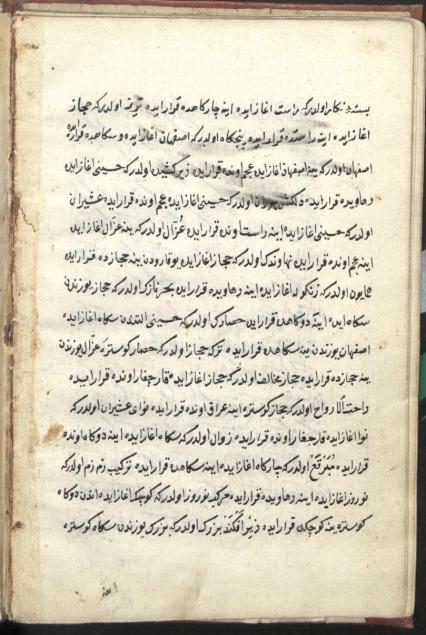 بسته نكار اولدر كه راست اغاز ايده اينه چاركاهده قرار ايده اولدر كه حجاز
اغاز ايده اينه راستده قرار ايده پنجكاه اولدر كه اصفهان اغاز ايده و سكاهده قرار ايده
اصفهان اولدر كه ينه اصفهان اغاز ايده عجم اونده قرار ايده زيركشيده اولدر كه حسينى اغاز ايده
رهاويده قرار ايده اولدر كه حسينى اغاز ايده عجم اونده قرار ايده عشيران
اولدر كه حسينى اغاز ايده اينه راست اونده قرار ايده غزّال اولدر كه ينه غزال اغاز ايده
اينه عجم اونده قرار ايده نهاوندك اولدر كه حجاز اغاز ايده يوقارودن ينه حجازده قرار ايده
همايون اولدر كه زنكوله اغاز ايده اينه رهاويده قرار ايده بحر نازك اولدر كه حجاز يوزندن
سكاه ايده اينه دوكاهده قرار ايده حصارك اولدر كه حسينى التندن سكاه اغاز ايده
اصفهان يوزندن ينه سكاهده قرار ايده تركه حجاز اولدر كه حصار كوستره غزال يوزندن
ينه حجازده قرار ايده حجاز مخالف اولدر كه حجاز اغاز ايده قارجغار اونده قرار ايده
راحت الارواح اولدر كه حجاز كوستره اينه عراق اونده قرار ايده نواى عشيران اولدر كه
نوا اغاز ايده قارجغار اونده قرار ايده زوال اولدر كه سكاه اغاز ايده اينه دوكاه اونده
قرار ايده مبرقع اولدر كه چاركاه اغاز ايده اينه سكاهده قرار ايده تركيب زمزم اولدر كه
نوروز اغاز ايده اينه رهاويده قرار ايده نوروز اولدر كه كوچك اغاز ايده اندن دوكاه
كوستره ينه كوچكده قرار ايده زيرافكند بزرك اولدر كه بزرك يوزندن سكاه كوستره
اينه